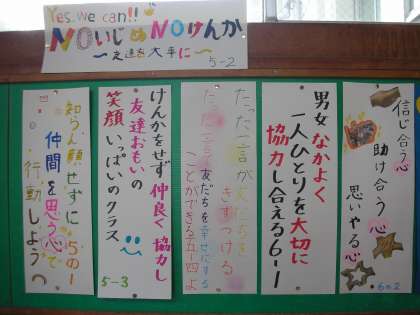 Yes. we can!!
NOいじめNOけんか
〜友達を大事に〜
5-2
信じ合う心
助け合う心
思いやる心
6の2
男女なかよく
一人ひとりを大切に
協力し合える6-1
たった一言が友だちを
きずつける
たった一言で友だちを幸せにする
ことができる五-四よ
けんかをせず仲良く協力し
友達おもいの
笑顔いっぱいのクラス
5-3
知らん顔せずに5の1
仲間を思う心で
行動しよう